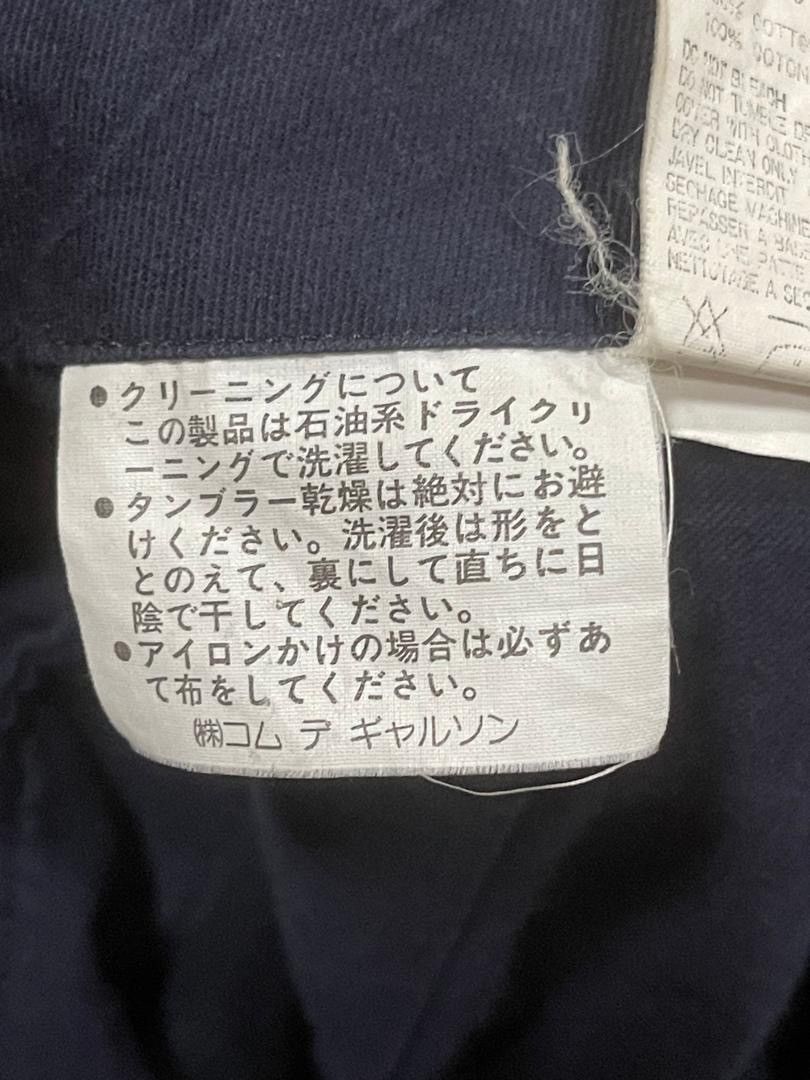 COTTON
100% COTON
DO NOT BLEACH
DO NOT TUMBLE
COVER WITH CLOTH
DRY CLEAN ONLY
JAVEL INTERDIT
SECHAGE MACHINE
REPASSER A
AVEC UNE
NETTOYAGE A SEC
●クリーニングについて
この製品は石油系ドライクリ
ーニングで洗濯してください。
●タンブラー乾燥は絶対にお避
けください。洗濯後は形をと
とのえて、裏にして直ちに日
陰で干してください。
●アイロンかけの場合は必ずあ
て布をしてください。
㈱コム デ ギャルソン